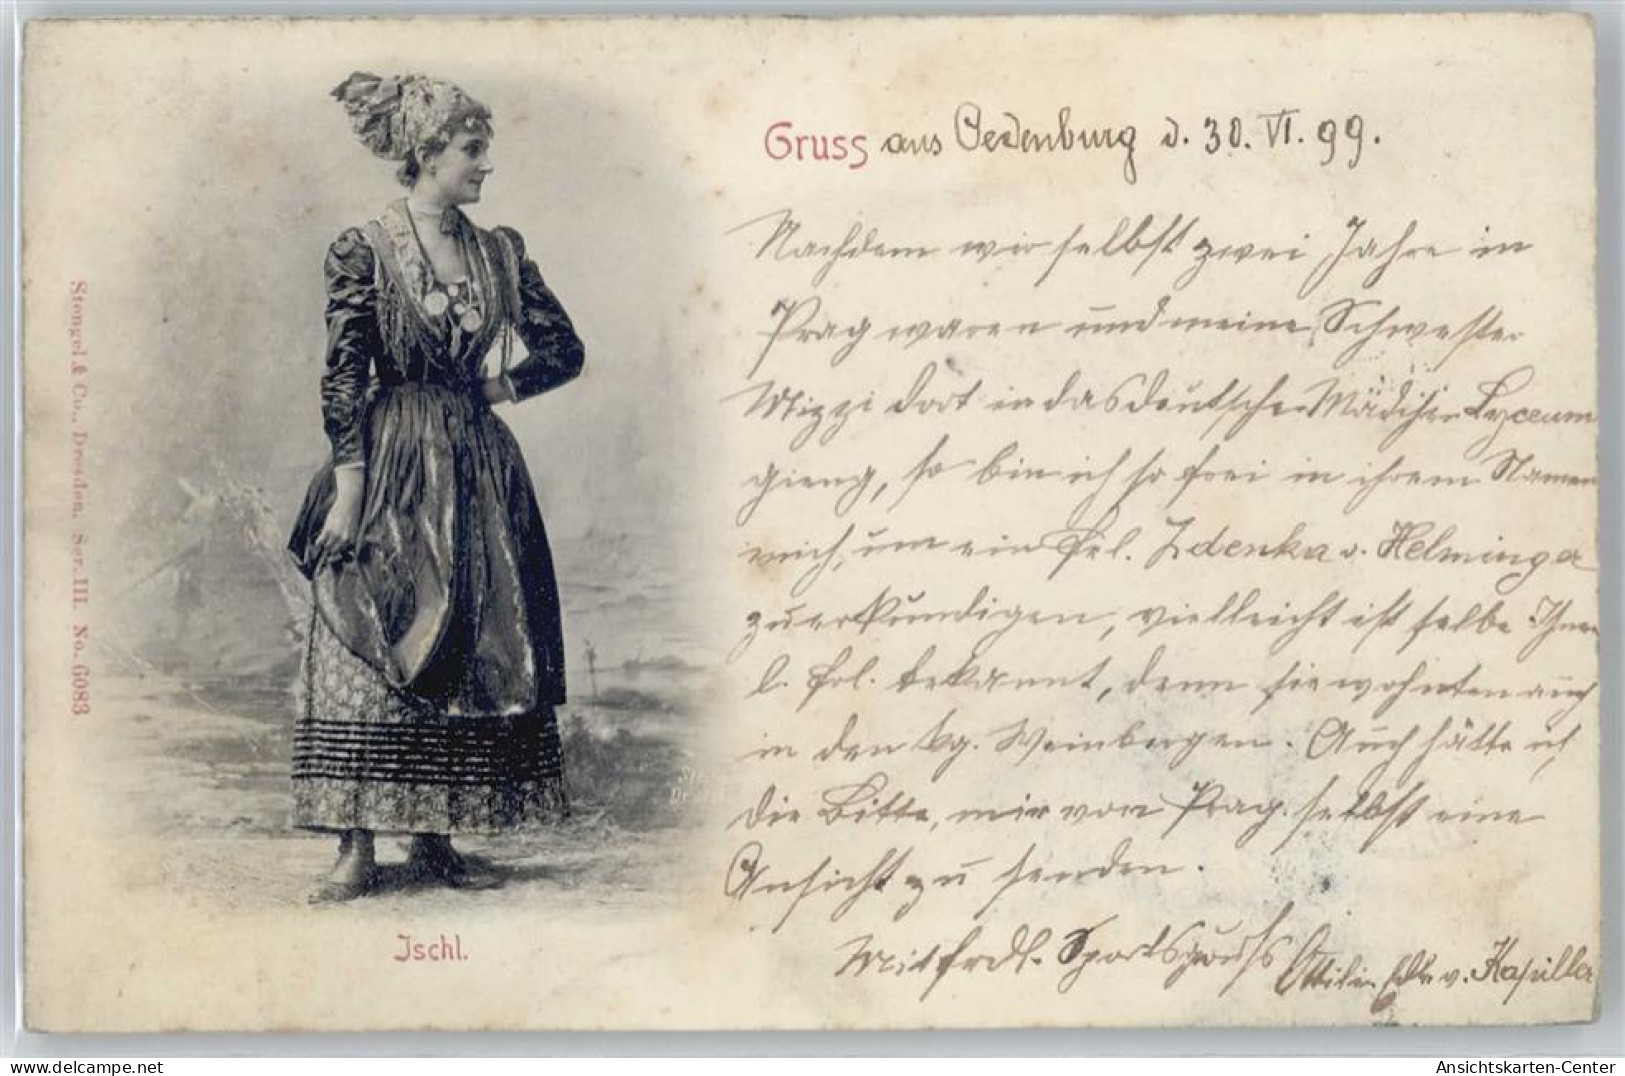 Gruss aus Oedenburg d. 30. VI. 99.
Nachdem wir selbst zwei Jahre in
Prag waren und meine Schwester
Mizzi dort in das deutsche Mädchen Lyceum
gieng, so bin ich so frei in ihrem Namen
mich, um ein Frl. Zdenka v. Helminger
zu erkundigen, vielleicht ist selbe Ihnen
l. Frl. bekannt, denn sie wohnten auch
in den kg. Weinbergen. Auch hätte ich
die Bitte, mir von Prag selbst eine
Ansicht zu senden.
Mit frdl. Sportsgruss Ottilie Edle v. Kapiller
Stengel & Co., Dresden. Ser. III. No. 6083
Ischl.
Ansichtskarten-Center
www.delcampe.net